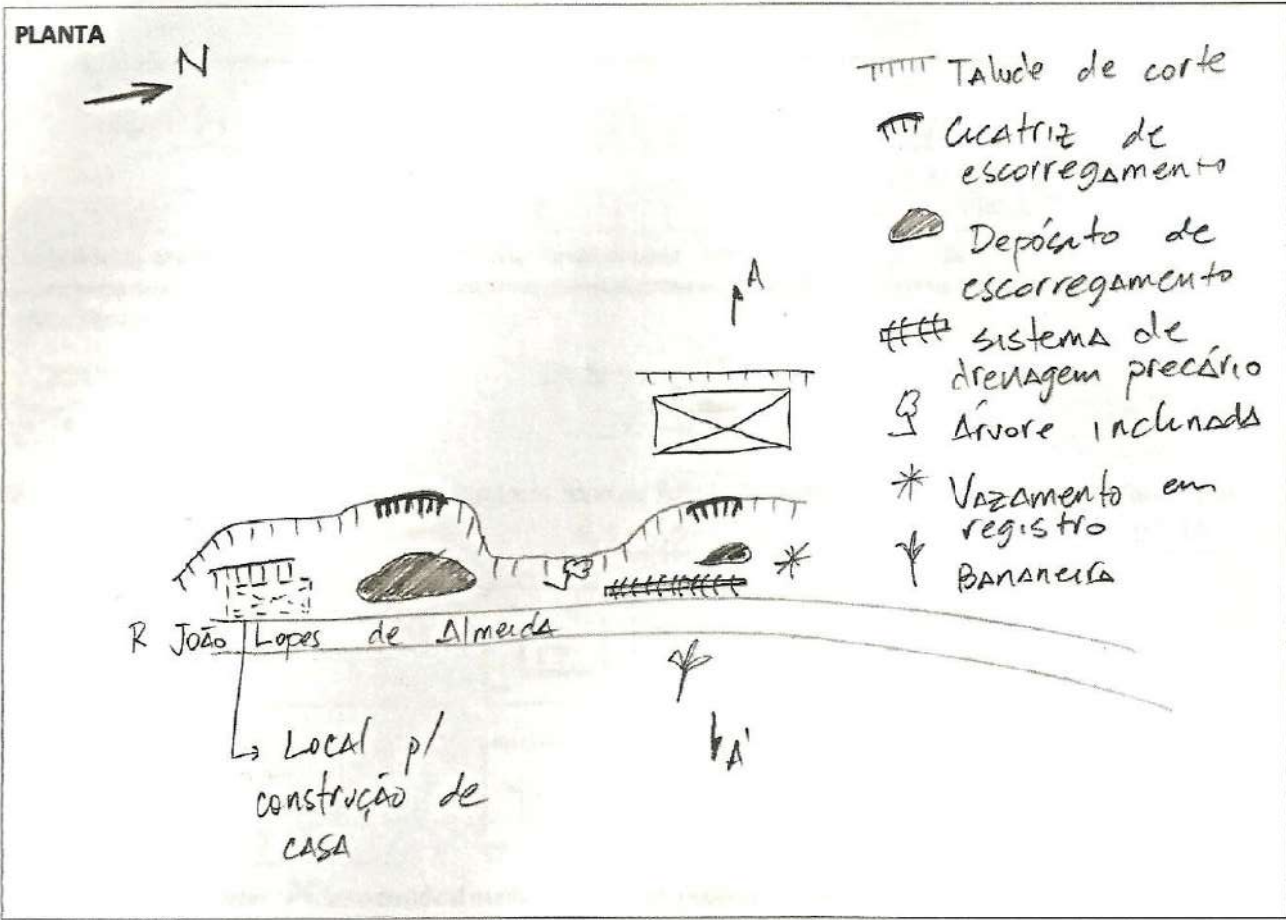 PLANTA
N
Talude de corte
Cicatriz de
escorregamento
Depósito de
escorregamento
sistema de
drenagem precário
Árvore inclinada
Vazamento em
registro
Bananeira
A
R João Lopes de Almeida
Local p/
construção de
casa
A'